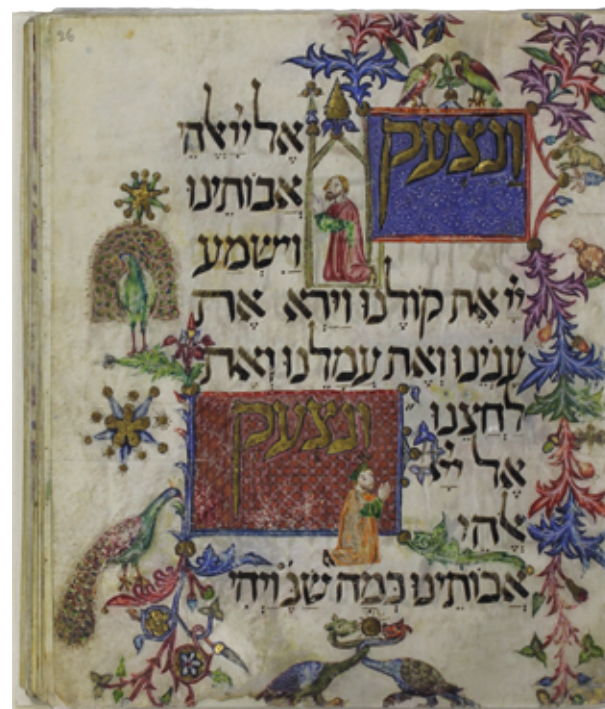 26
ונצעק
אל יי אלהי
אבותינו
וישמע
יי את קולנו וירא את
ענינו ואת עמלנו ואת
לחצנו
ונצעק
אל יי
אלהי
אבותינו כמה שנ ויהי